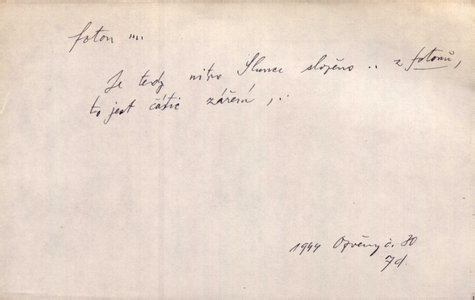 foton ....
Je tedy nitro Slunce složeno .. z fotonů,
to jest částic záření, ..
1944 č. 30
7d.